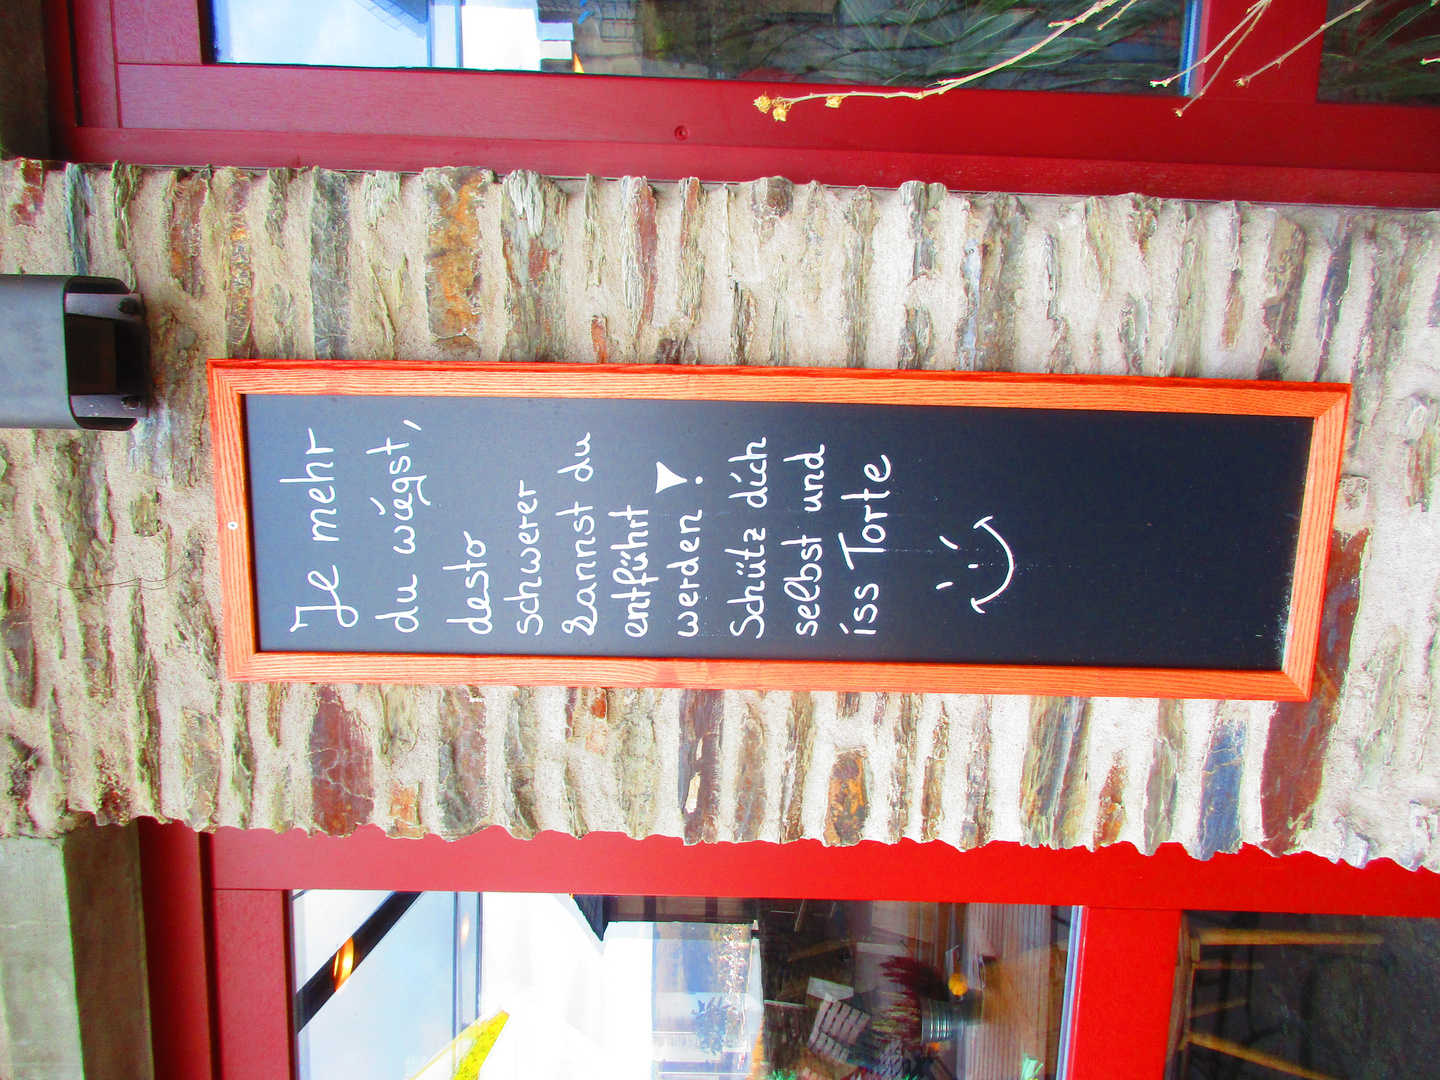 Je mehr
du wiegst,
desto
schwerer
kannst du
entführt
werden!
Schütz dich
selbst und
iss Torte